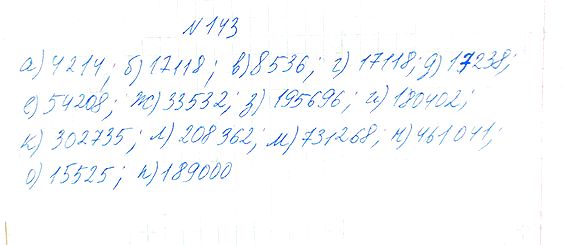 №143
а) 4214; б) 17118; в) 8536; г) 17118; д) 17238;
е) 54208; ж) 33532; з) 195696; и) 180402;
к) 302735; л) 208362; м) 731268; н) 461041;
о) 15525; п) 189000